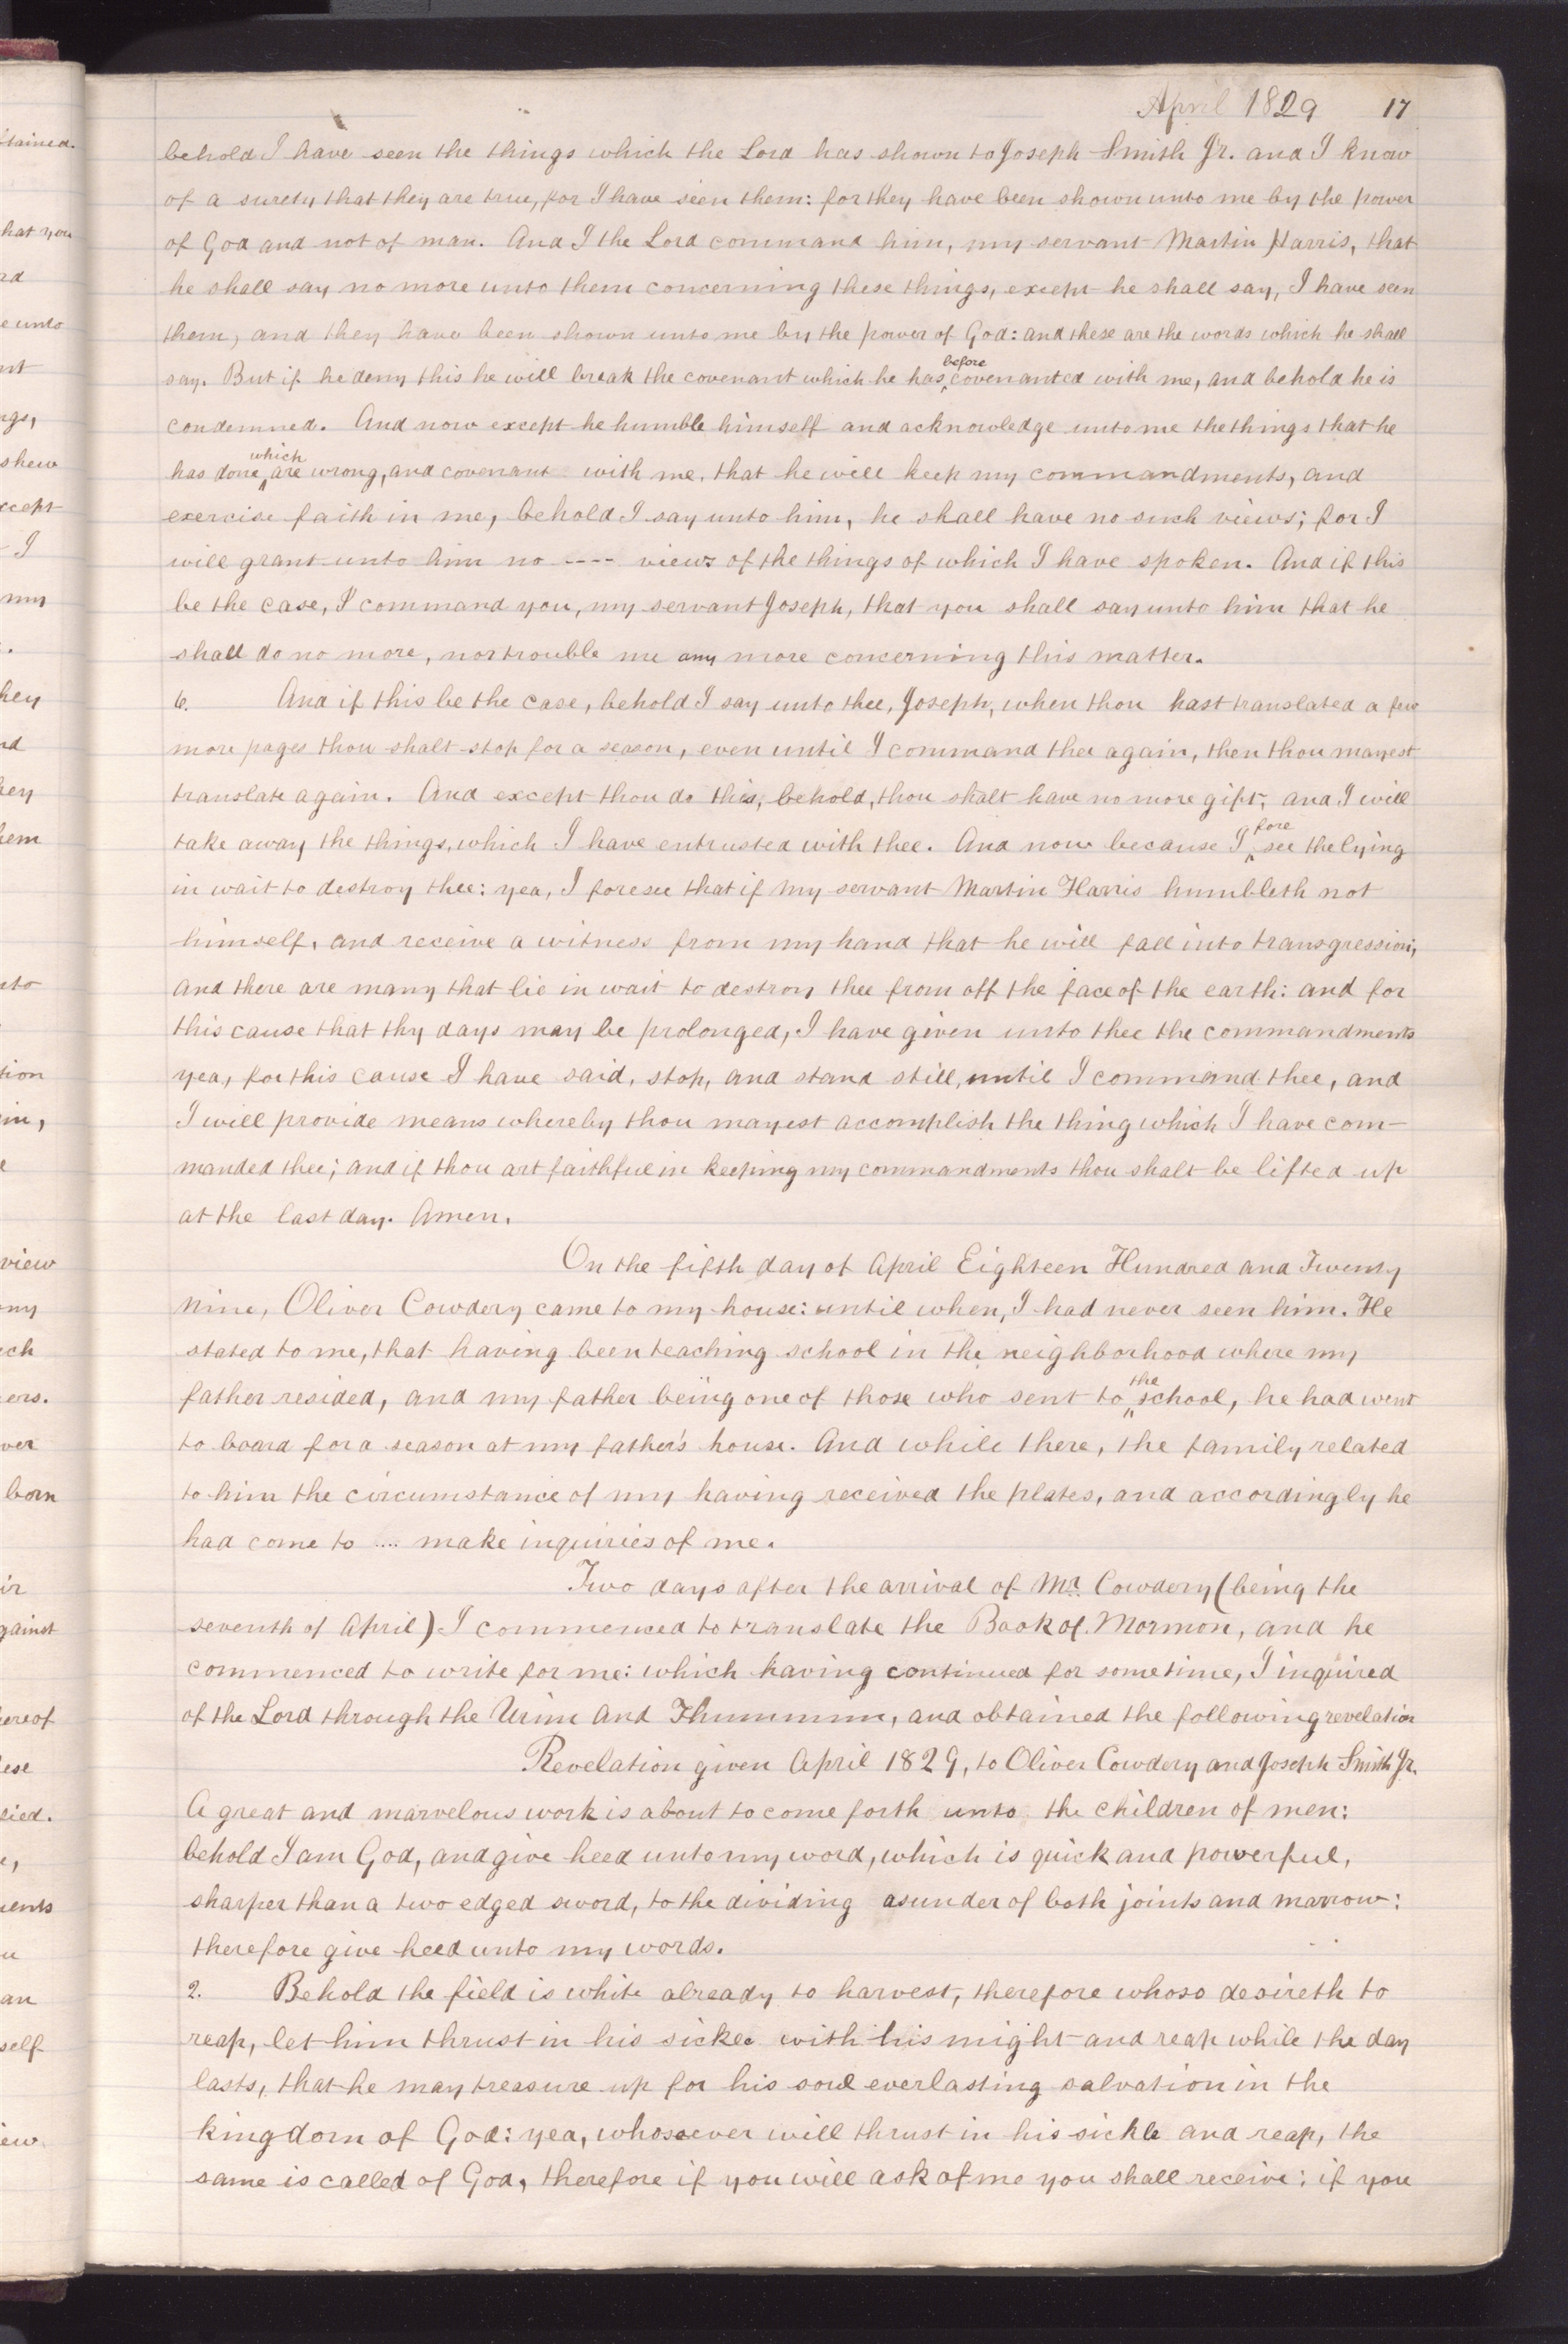 April 1829 17
behold I have seen the things which the Lord has shown to Joseph Smith Jr. and I know
of a surety that they are true, for I have seen them: for they have been shown unto me by the power
of God and not of man. And I the Lord command him, my servant Martin Harris, that
he shall say no more unto them concerning these things, except he shall say, I have seen
them, and they have been shown unto me by the power of God: and these are the words which he shall
say. But if he deny this he will break the covenant which he has before covenanted with me, and behold he is
condemned. And now except he humble himself and acknowledge unto me the things that he
has done which are wrong, and covenant with me, that he will keep my commandments, and
exercise faith in me, behold I say unto him, he shall have no such views; for I
will grant unto him no ---- views of the things of which I have spoken. And if this
be the case, I command you, my servant Joseph, that you shall say unto him that he
shall do no more, nor trouble me any more concerning this matter.
6. And if this be the case, behold I say unto thee, Joseph, when thou hast translated a few
more pages thou shalt stop for a season, even until I command thee again, then thou mayest
translate again. And except thou do this, behold, thou shalt have no more gift, and I will
take away the things, which I have entrusted with thee. And now because I fore see the lying
in wait to destroy thee: yea, I foresee that if my servant Martin Harris humbleth not
himself, and receive a witness from my hand that he will fall into transgression,
and there are many that lie in wait to destroy thee from off the face of the earth: and for
this cause that thy days may be prolonged, I have given unto thee the commandments
yea, for this cause I have said, stop, and stand still, until I command thee, and
I will provide means whereby thou mayest accomplish the thing which I have com-
manded thee; and if thou art faithful in keeping my commandments thou shalt be lifted up
at the last day. Amen.
On the fifth day of April Eighteen Hundred and Twenty
nine, Oliver Cowdery came to my house: until when, I had never seen him. He
stated to me, that having been teaching school in the neighborhood where my
father resided, and my father being one of those who sent to the school, he had went
to board for a season at my father's house. And while there, the family related
to him the circumstance of my having received the plates, and accordingly he
had come to .... make inquiries of me.
Two days after the arrival of Mr. Cowdery (being the
seventh of April) I commenced to translate the Book of Mormon, and he
commenced to write for me: which having continued for sometime, I inquired
of the Lord through the Urim and Thummim, and obtained the following revelation
Revelation given April 1829, to Oliver Cowdery and Joseph Smith Jr.
A great and marvelous work is about to come forth unto the children of men:
behold I am God, and give heed unto my word, which is quick and powerful,
sharper than a two edged sword, to the dividing asunder of both joints and marrow:
therefore give heed unto my words.
2. Behold the field is white already to harvest, therefore whoso desireth to
reap, let him thrust in his sickle with his might and reap while the day
lasts, that he may treasure up for his soul everlasting salvation in the
kingdom of God: yea, whosoever will thrust in his sickle and reap, the
same is called of God, therefore if you will ask of me you shall receive: if you